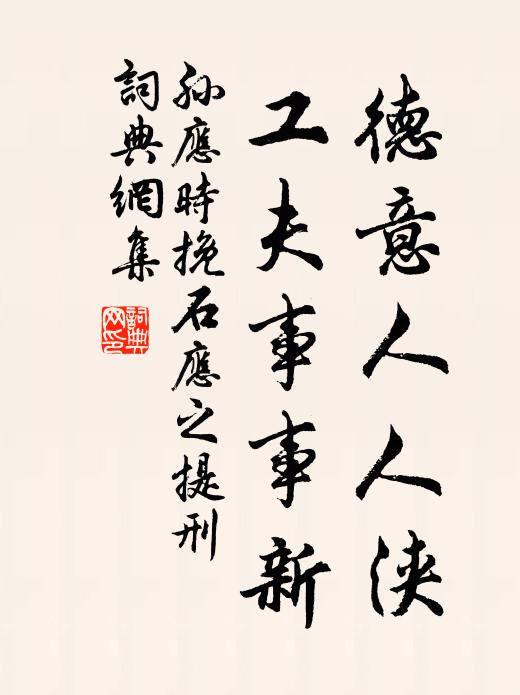 德意人人浹
工夫事事新
孫應時挽石應之提刑
詞典網集
詞典
网印